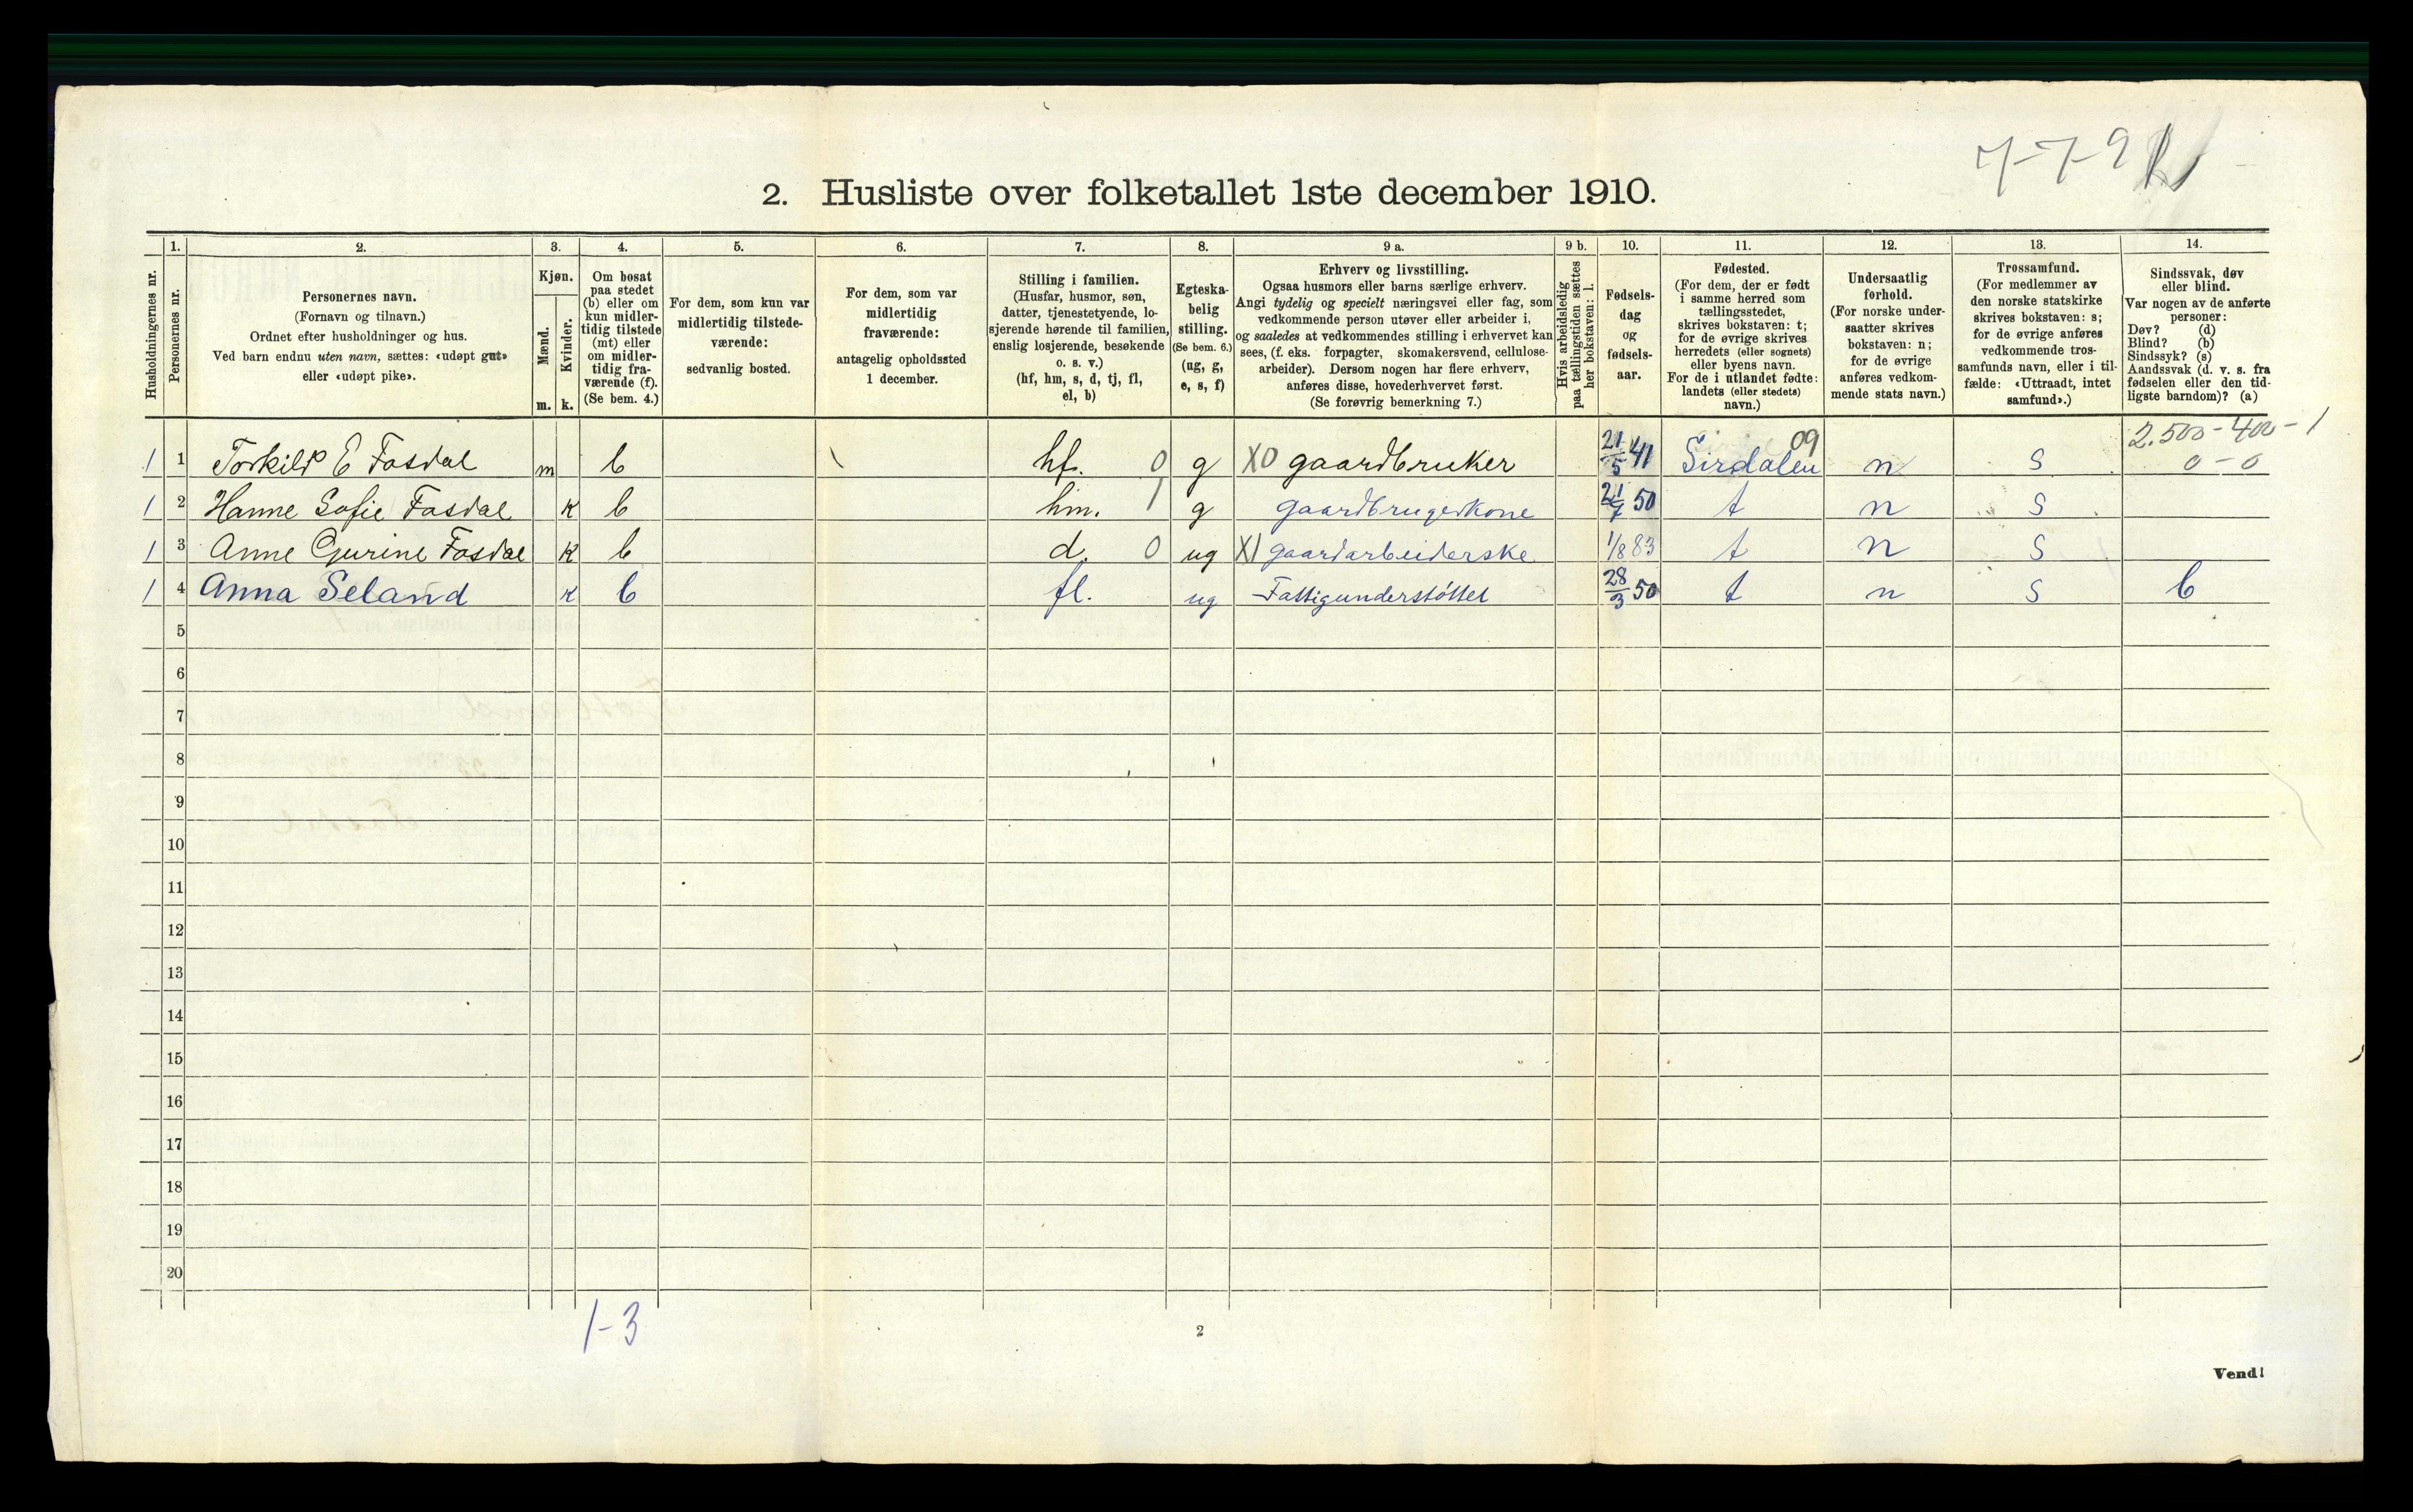 7-7-9
2. Husliste over folketallet 1ste december 1910.
Husholdningernes nr.
1.
Personernes nr.
2.
Personernes navn.
(Fornavn og tilnavn.)
Ordnet efter husholdninger og hus.
Ved barn endnu uten navn, sættes: «udøpt gut»
eller «udøpt pike».
3.
Kjøn.
Mænd.
Kvinder.
m. k.
4.
Om bosat
paa stedet
(b) eller om
kun midler-
tidig tilstede
(mt) eller
om midler-
tidig fra-
værende (f).
(Se bem. 4.)
5.
For dem, som kun var
midlertidig tilstede-
værende:
sedvanlig bosted.
6.
For dem, som var
midlertidig
fraværende:
antagelig opholdssted
1 december.
7.
Stilling i familien.
(Husfar, husmor, søn,
datter, tjenestetyende, lo-
sjerende hørende til familien,
enslig losjerende, besøkende
o. s. v.)
(hf, hm, s, d, tj, fl,
el, b)
8.
Egteska-
belig
stilling.
(Se bem. 6.)
(ug, g,
e, s, f)
9 a.
Erhverv og livsstilling.
Ogsaa husmors eller barns særlige erhverv.
Angi tydelig og specielt næringsvei eller fag, som
vedkommende person utøver eller arbeider i,
og saaledes at vedkommendes stilling i erhvervet kan
sees, (f. eks. forpagter, skomakersvend, cellulose-
arbeider). Dersom nogen har flere erhverv,
anføres disse, hovederhvervet først.
(Se forøvrig bemerkning 7.)
9 b.
Hvis arbeidsledig
paa tællingstiden sættes
her bokstaven: l.
10.
Fødsels-
dag
og
fødsels-
aar.
11.
Fødested.
(For dem, der er født
i samme herred som
tællingsstedet,
skrives bokstaven: t;
for de øvrige skrives
herredets (eller sognets)
eller byens navn.
For de i utlandet fødte:
landets (eller stedets)
navn.)
12.
Undersaatlig
forhold.
(For norske under-
saatter skrives
bokstaven: n;
for de øvrige
anføres vedkom-
mende stats navn.)
13.
Trossamfund.
(For medlemmer av
den norske statskirke
skrives bokstaven: s;
for de øvrige anføres
vedkommende tros-
samfunds navn, eller i til-
fælde: «Uttraadt, intet
samfund».)
14.
Sindssvak, døv
eller blind.
Var nogen av de anførte
personer:
Døv? (d)
Blind? (b)
Sindssyk? (s)
Aandssvak (d. v. s. fra
fødselen eller den tid-
ligste barndom)? (a)
2.500-400-1
0-0
1 1 Torkild E Fosdal m b hf. 0 g X0 gaardbruker 21/5 41 Sirdalen 09 n s
1 2 Hanne Sofie Fosdal k b hm. 1 g gaardbrugerkone 21/7 50 t n s
1 3 Anne Gurine Fosdal k b d. 0 ug X1 gaardarbeiderske 1/8 83 t n s
1 4 Anna Seland k b fl. ug Fattigunderstøttet 28/3 50 t n s b
5
6
7
8
9
10
11
12
13
14
15
16
17
18
19
20
1-3
2
Vend!